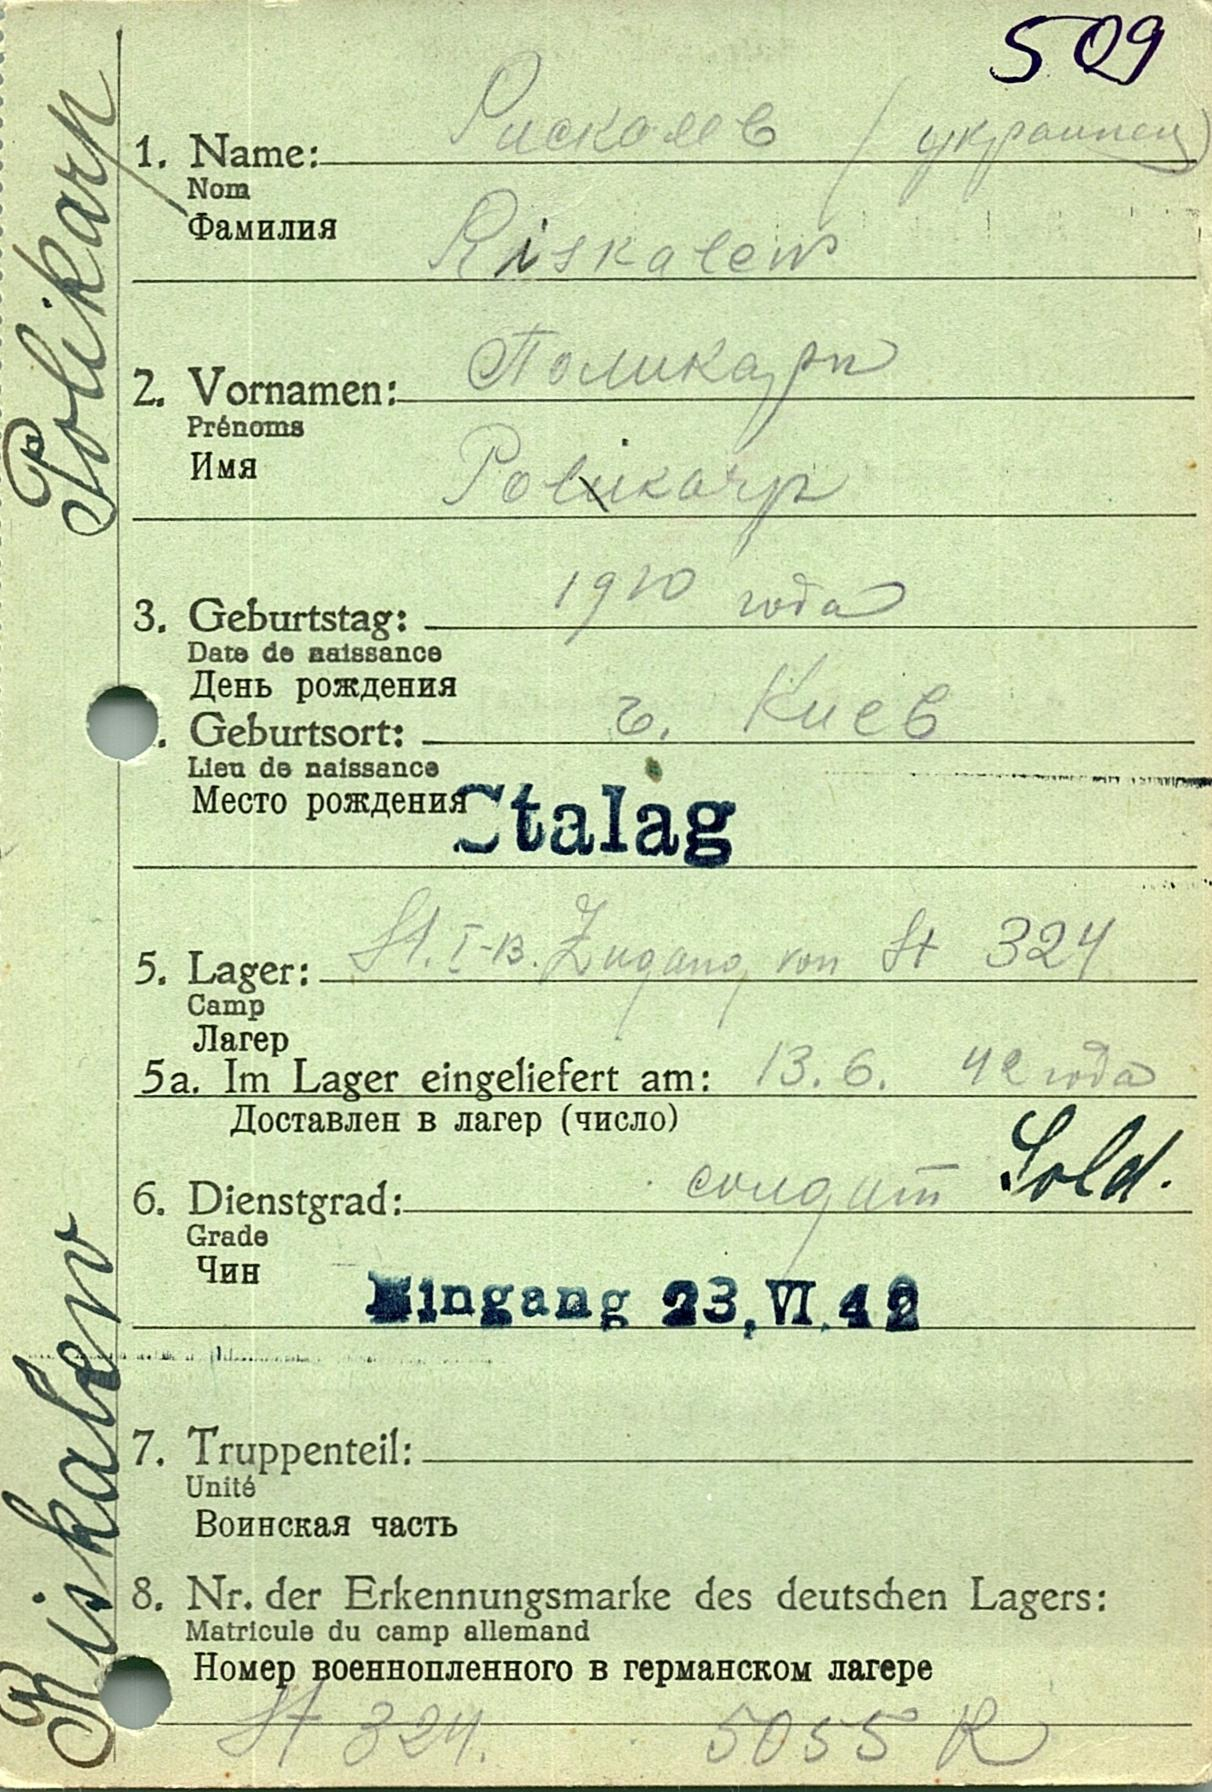 509
1. Name: Рискалев (украинец)
Nom
Фамилия
Riskalew
2. Vornamen: Поликарп
Prénoms
Имя
Polikarp
3. Geburtstag: 1910 года
Date de naissance
День рождения
. Geburtsort: г. Киев
Lieu de naissance
Место рождения
Stalag
5. Lager: St. I-B. Zugang von St 324
Camp
Лагер
5a. Im Lager eingeliefert am: 13.6. 42 года
Доставлен в лагер (число)
6. Dienstgrad: солдат Sold.
Grade
Чин
Eingang 23.VI.42
7. Truppenteil:
Unité
Воинская часть
8. Nr. der Erkennungsmarke des deutschen Lagers:
Matricule du camp allemand
Номер военнопленного в германском лагере
St 324. 5055 R
Riskalew Polikarp